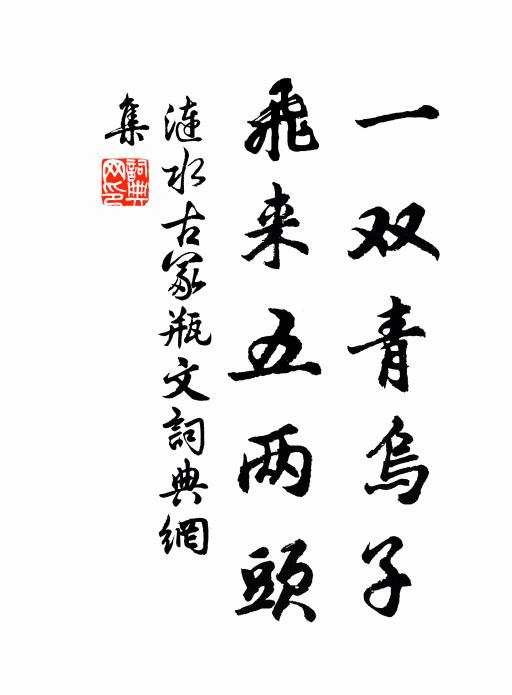 一双青鸟子
飞来五两頭
涟水古冢瓶文詞典網
集
詞典网印